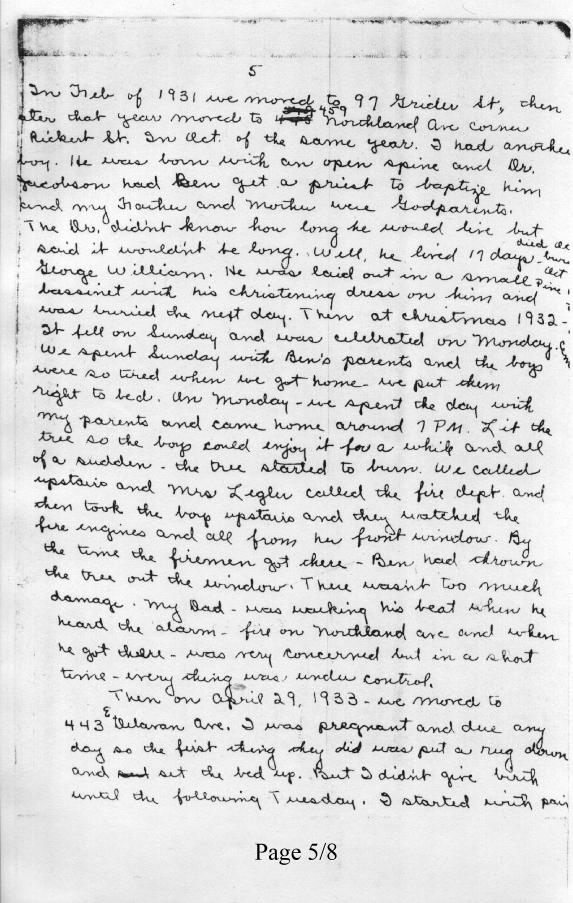 5
In Feb of 1931 we moved to 97 Grider St, then
ter that year moved to 459 Northland Ave corner
Rickert St. In Oct. of the same year. I had another
boy. He was born with an open spine and Dr.
Jacobson had Ben get a priest to baptize him
and my Father and Mother were Godparents.
The Dr. didn't know how long he would live but
said it wouldn't be long. Well, he lived 17 days - died Oc
George William. He was laid out in a small
bassinet with his christening dress on him and
was buried the next day. Then at christmas 1932 -
It fell on Sunday and was celebrated on Monday.
We spent Sunday with Ben's parents and the boys
were so tired when we got home - we put them
right to bed. On Monday - we spent the day with
my parents and came home around 7 PM. Lit the
tree so the boys could enjoy it for a while and all
of a sudden - the tree started to burn. We called
upstairs and Mrs Legler called the fire dept. and
then took the boys upstairs and they watched the
fire engines and all from her front window. By
the time the firemen got there - Ben had thrown
the tree out the window. There wasn't too much
damage. My Dad - was walking his beat when he
heard the alarm - fire on Northland ave and when
he got there - was very concerned but in a short
time - every thing was under control.
Then on April 29, 1933 - we moved to
443 E Delavan Ave. I was pregnant and due any
day so the first thing they did was put a rug down
and set the bed up. But I didn't give birth
until the following Tuesday. I started with pain
Page 5/8